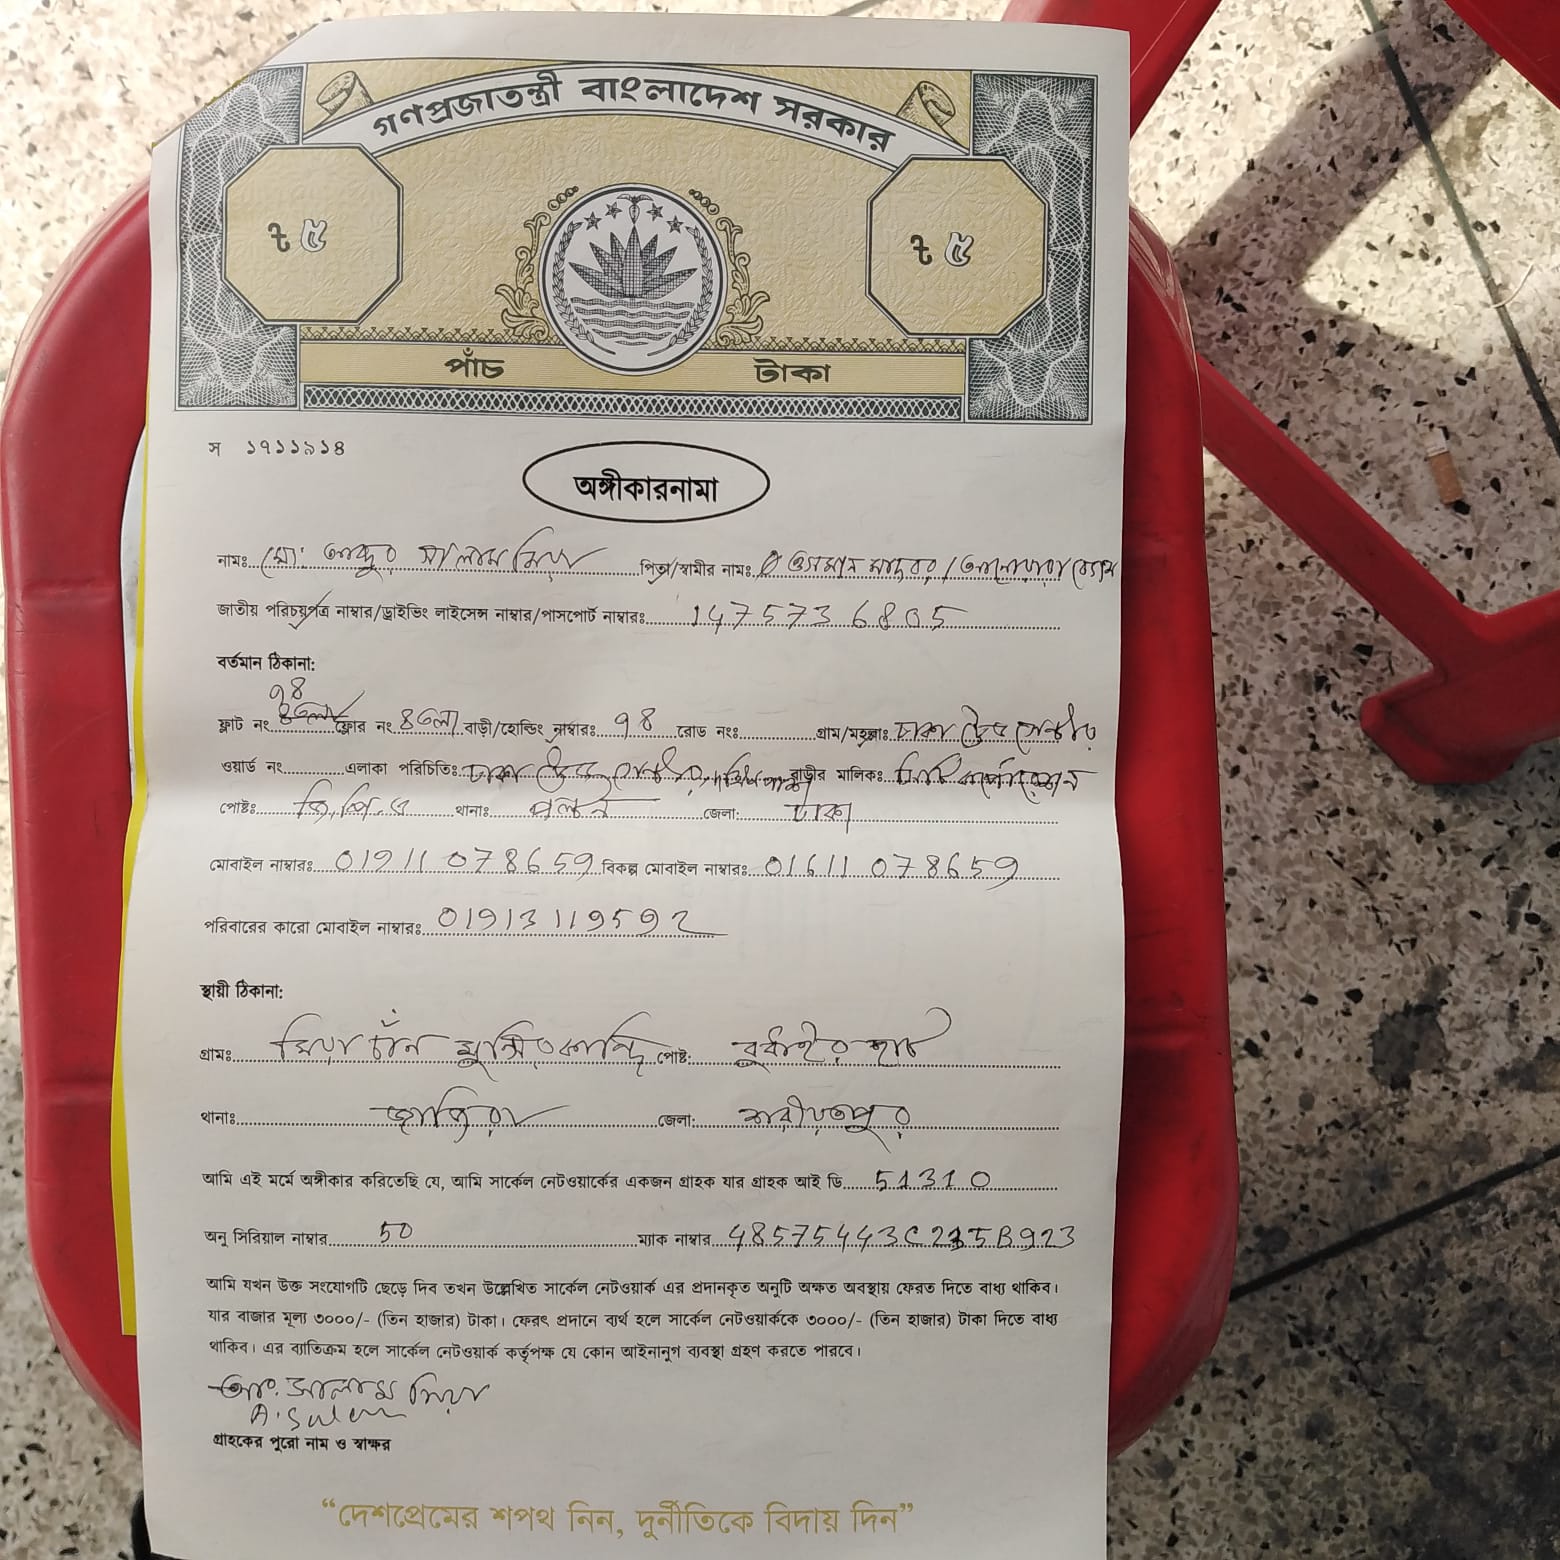 গণপ্রজাতন্ত্রী বাংলাদেশ সরকার
৳ ৫ ৳ ৫
পাঁচ টাকা
স ১৭১১৯১৪
অঙ্গীকারনামা
নামঃ মো: আব্দুর সালাম মিয়া পিতা/স্বামীর নামঃ ওসমান মাদবর / আনোয়ারা বেগম
জাতীয় পরিচয়পত্র নাম্বার/ড্রাইভিং লাইসেন্স নাম্বার/পাসপোর্ট নাম্বারঃ 1475736805
বর্তমান ঠিকানা:
৭৪
ফ্লাট নং ৪তলা ফ্লোর নং ৪তলা বাড়ী/হোল্ডিং নাম্বারঃ ৭৪ রোড নংঃ গ্রাম/মহল্লাঃ ঢাকা ট্রেড সেন্টার
ওয়ার্ড নং এলাকা পরিচিতিঃ ঢাকা ট্রেড সেন্টার, বাড়ীর মালিকঃ সিটি কর্পোরেশন
পোষ্টঃ জি,পি,ও থানাঃ পল্টন জেলা: ঢাকা
মোবাইল নাম্বারঃ 01911078659 বিকল্প মোবাইল নাম্বারঃ 01611078659
পরিবারের কারো মোবাইল নাম্বারঃ 01913119592
স্থায়ী ঠিকানা:
গ্রামঃ মিয়া চাঁন মুন্সিরকান্দি পোষ্ট: হাট
থানাঃ জাজিরা জেলা: শরীয়তপুর
আমি এই মর্মে অঙ্গীকার করিতেছি যে, আমি সার্কেল নেটওয়ার্কের একজন গ্রাহক যার গ্রাহক আই ডি 51310
অনু সিরিয়াল নাম্বার 50 ম্যাক নাম্বার 48575443C235B923
আমি যখন উক্ত সংযোগটি ছেড়ে দিব তখন উল্লেখিত সার্কেল নেটওয়ার্ক এর প্রদানকৃত অনুটি অক্ষত অবস্থায় ফেরত দিতে বাধ্য থাকিব।
যার বাজার মূল্য ৩০০০/- (তিন হাজার) টাকা। ফেরৎ প্রদানে ব্যর্থ হলে সার্কেল নেটওয়ার্ককে ৩০০০/- (তিন হাজার) টাকা দিতে বাধ্য
থাকিব। এর ব্যতিক্রম হলে সার্কেল নেটওয়ার্ক কর্তৃপক্ষ যে কোন আইনানুগ ব্যবস্থা গ্রহণ করতে পারবে।
আ: সালাম মিয়া
A. Salam
গ্রাহকের পুরো নাম ও স্বাক্ষর
“দেশপ্রেমের শপথ নিন, দুর্নীতিকে বিদায় দিন”